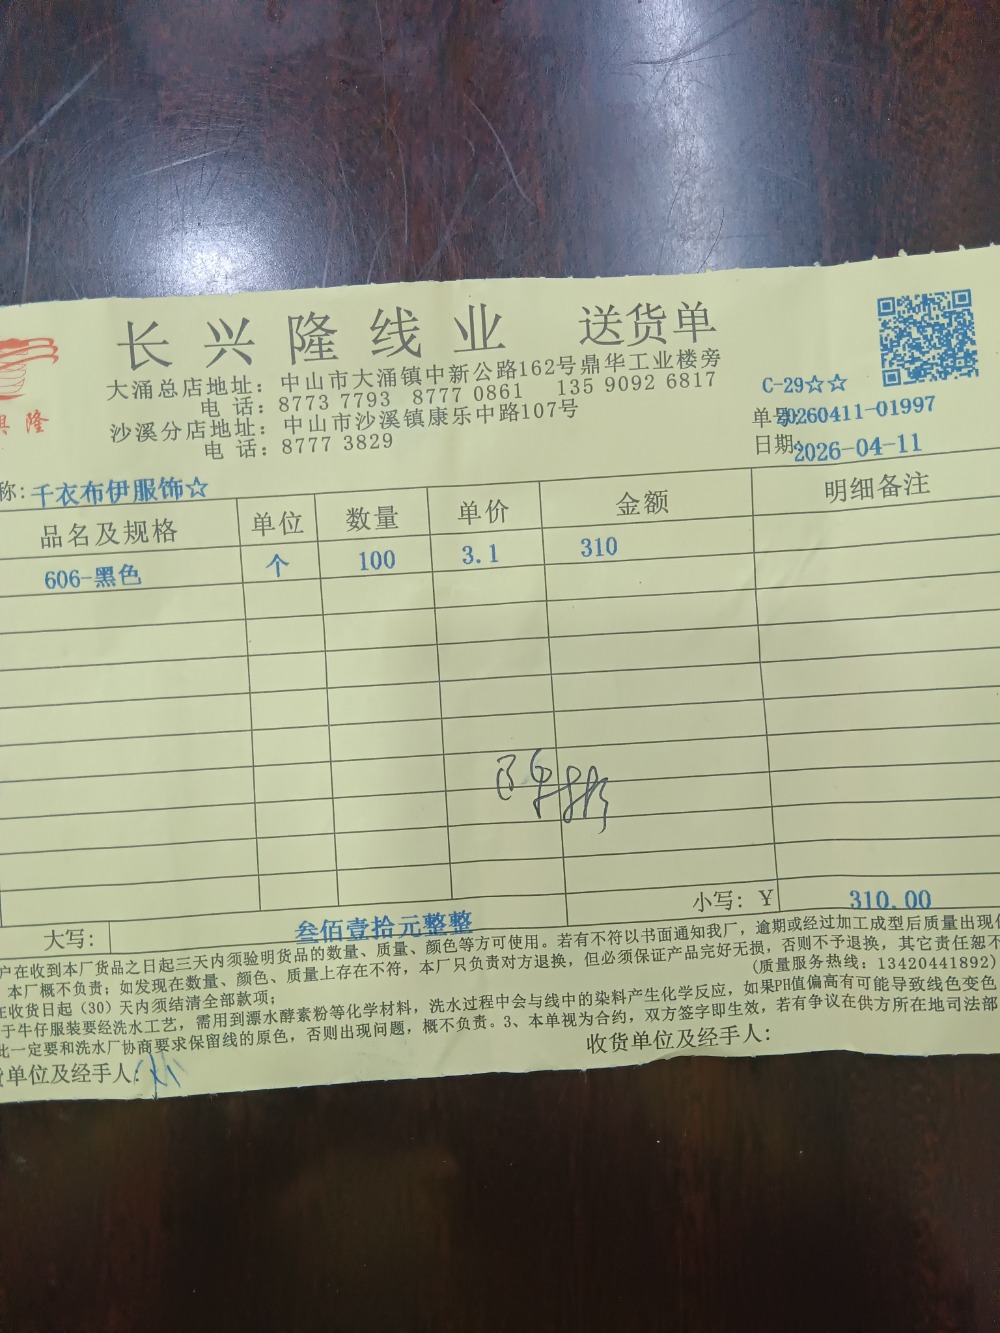 长兴隆线业 送货单
大涌总店地址：中山市大涌镇中新公路162号鼎华工业楼旁
电 话：8773 7793 8777 0861 135 9092 6817
沙溪分店地址：中山市沙溪镇康乐中路107号
电 话：8777 3829
兴隆
C-29☆☆
单号:20260411-01997
日期:2026-04-11
称:千衣布伊服饰☆
品名及规格 单位 数量 单价 金额 明细备注
606-黑色 个 100 3.1 310
大写： 叁佰壹拾元整整 小写：￥ 310.00
户在收到本厂货品之日起三天内须验明货品的数量、质量、颜色等方可使用。若有不符以书面通知我厂，逾期或经过加工成型后质量出现
本厂概不负责；如发现在数量、颜色、质量上存在不符，本厂只负责对方退换，但必须保证产品完好无损，否则不予退换，其它责任恕不
在收货日起（30）天内须结清全部款项； （质量服务热线：13420441892）
于牛仔服装要经洗水工艺，需用到漂水酵素粉等化学材料，洗水过程中会与线中的染料产生化学反应，如果PH值偏高有可能导致线色变色
此一定要和洗水厂协商要求保留线的原色，否则出现问题，概不负责。3、本单视为合约，双方签字即生效，若有争议在供方所在地司法部
货单位及经手人： 收货单位及经手人：